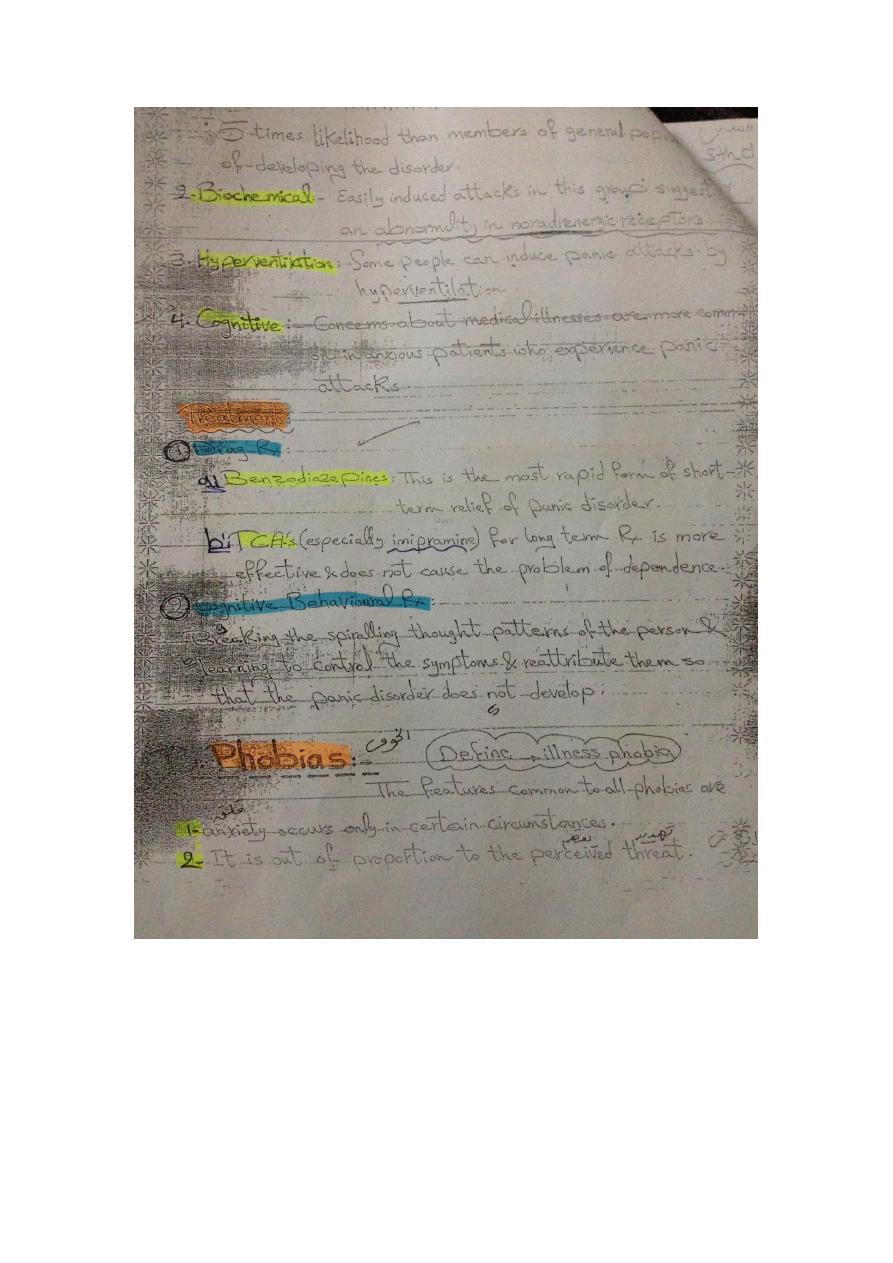 5 times likelihood than members of general
of developing the disorder.
2- Biochemical:- Easily induced attacks in this group suggest
an abnormality in noradrenergic receptors
3. Hyperventilation:- Some people can induce panic attacks by
hyperventilation
4. Cognitive:- Concerns about medical illnesses are more comm
in anxious patients who experience panic
attacks.
Treatment:
① Drug Rx:
a) Benzodiazepines: This is the most rapid form of short-
term relief of panic disorder.
b: TCA's (especially imipramine) for long term Rx is more
effective & does not cause the problem of dependence.
② Cognitive Behavioural Rx:
Breaking the spiralling thought patterns of the person &
learning to control the symptoms & reattribute them so
that the panic disorder does not develop.
Phobias:- الخوف Define illness phobia
The features common to all phobias are
1- anxiety occurs only in certain circumstances.
2- It is out of proportion to the perceived threat.